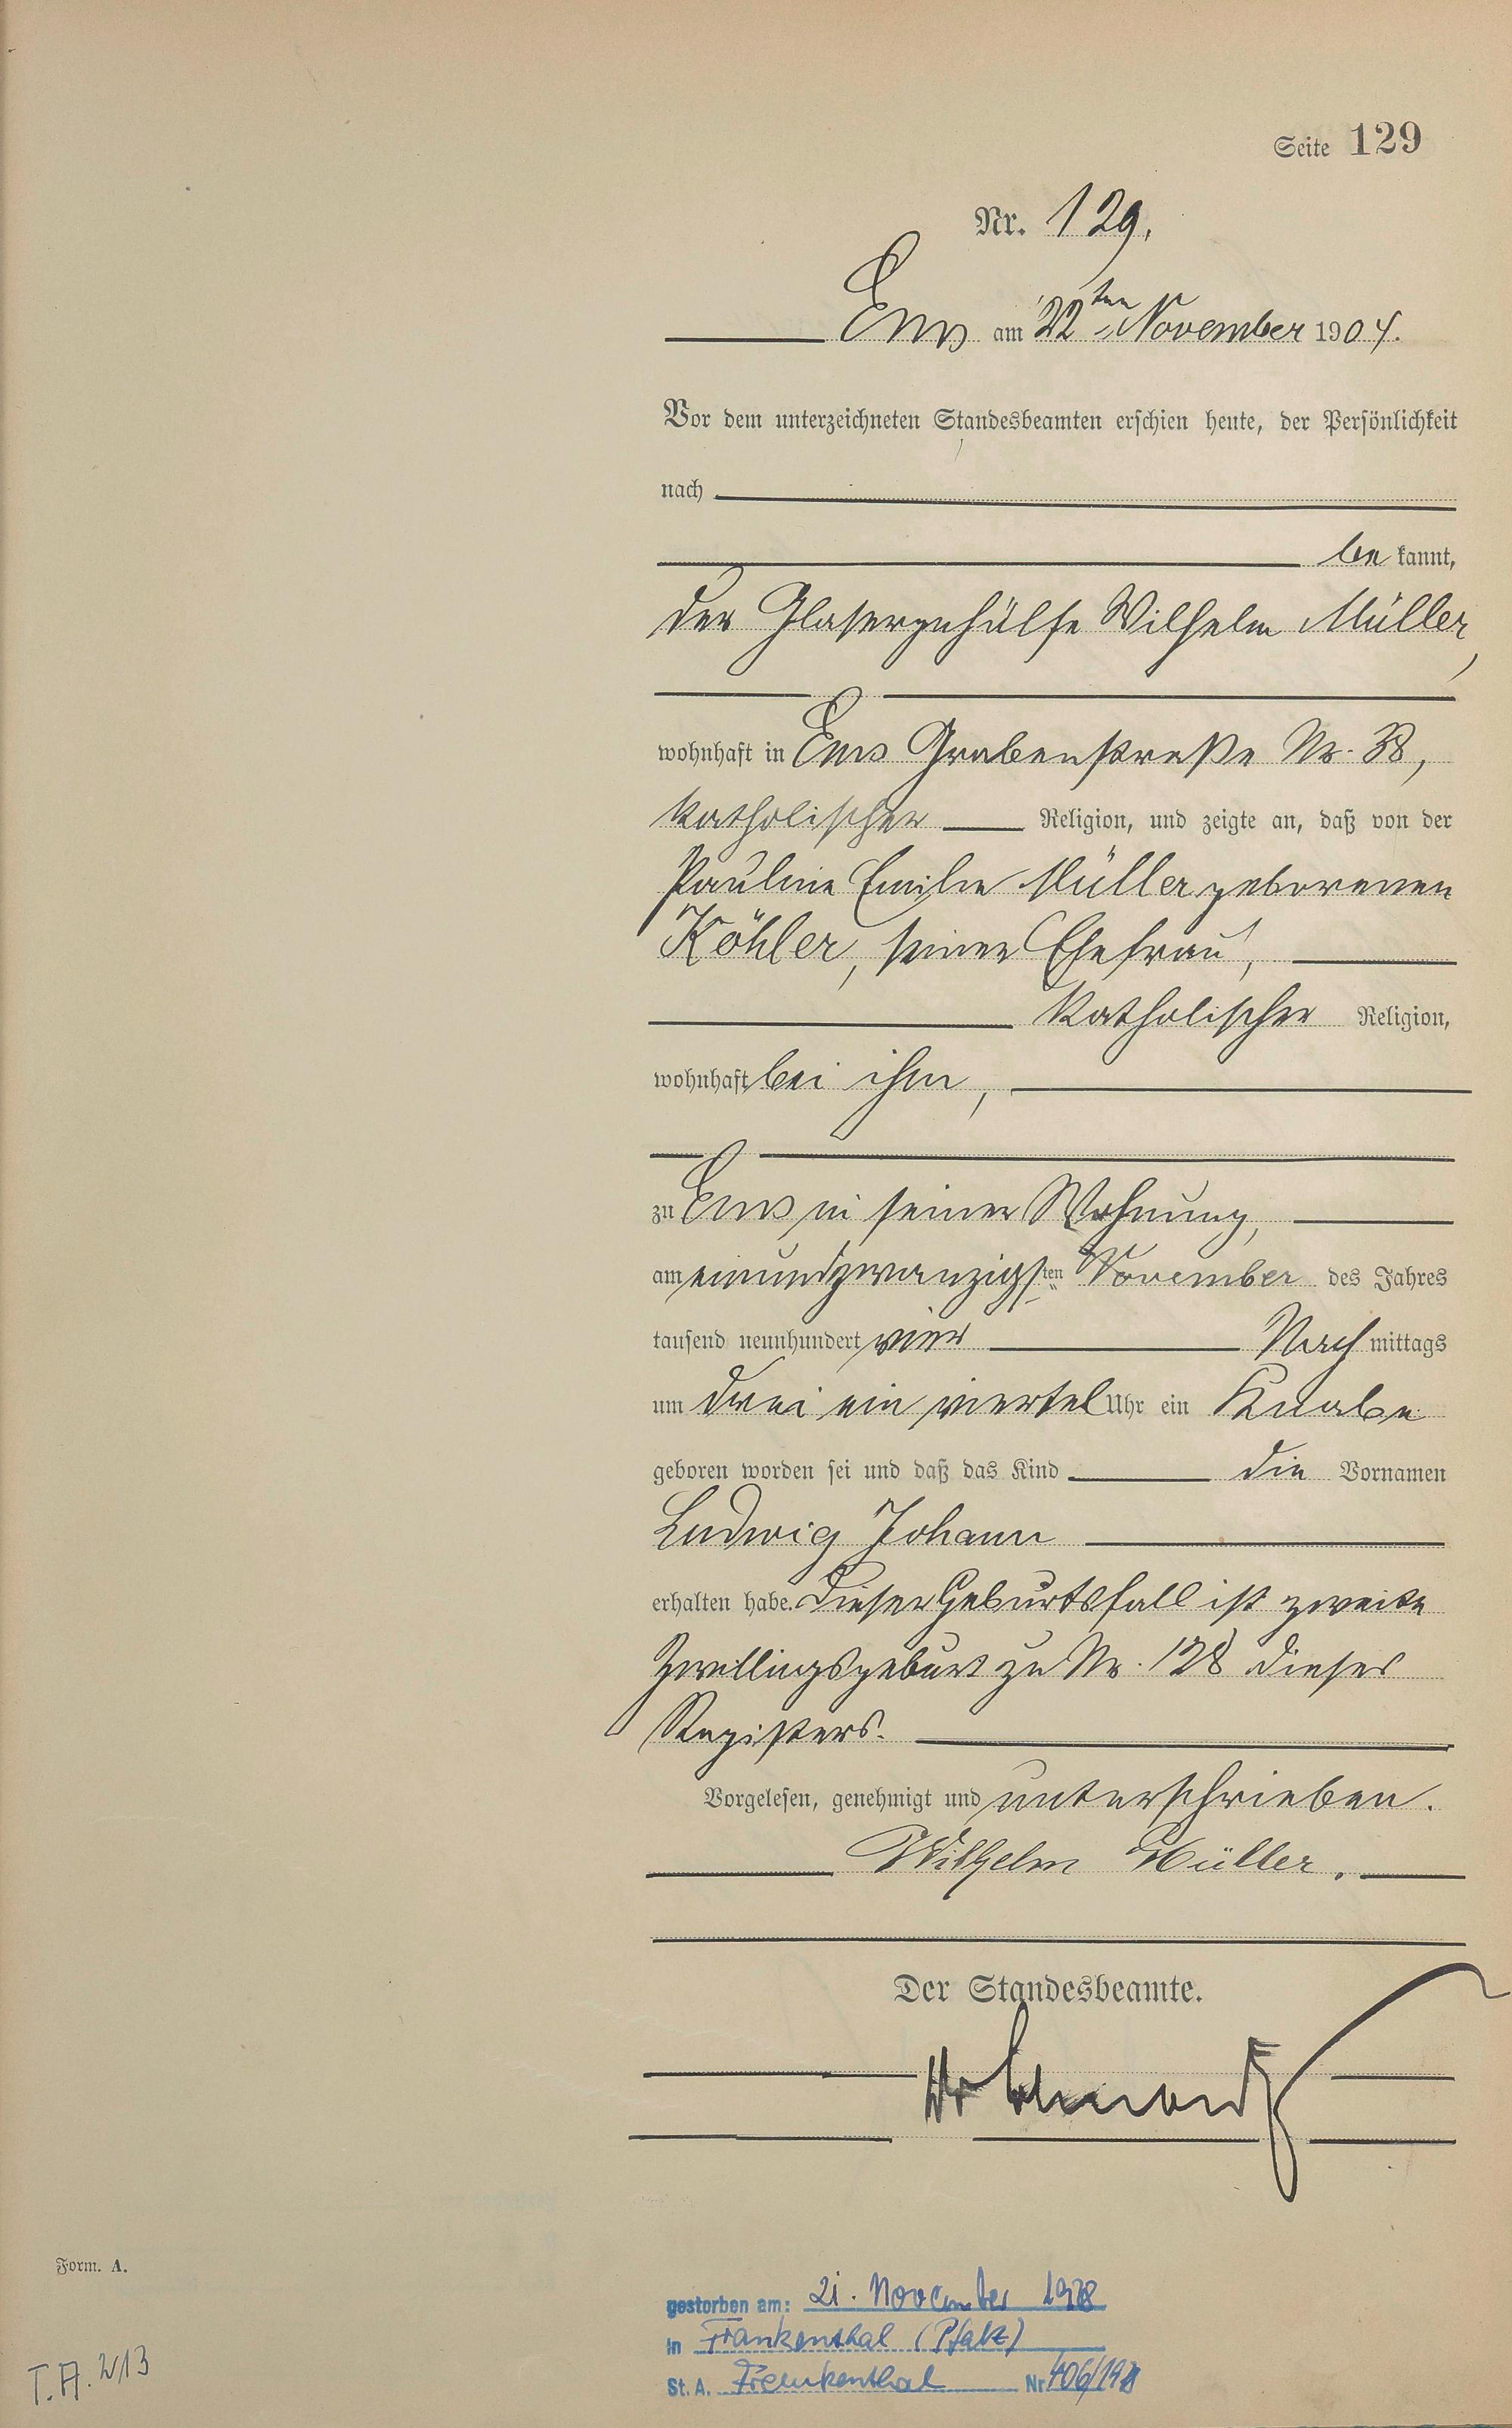 Seite 129
Nr. 129.
Ems am 22ten November 1904.
Vor dem unterzeichneten Standesbeamten erschien heute, der Persönlichkeit
nach
be kannt,
der Glasergehülfe Wilhelm Müller,
wohnhaft in Ems Grabenstraße Nr. 38,
katholischer Religion, und zeigte an, daß von der
Pauline Emilie Müller geborenen
Köhler, seiner Ehefrau,
katholischer Religion,
wohnhaft bei ihm,
zu Ems in seiner Wohnung,
am einundzwanzigsten November des Jahres
tausend neunhundert vier Nach mittags
um drei ein viertel Uhr ein Knabe
geboren worden sei und daß das Kind die Vornamen
Ludwig Johann
erhalten habe. Dieser Geburtsfall ist zweite
Zwillingsgeburt zu Nr. 128 dieses
Registers.
Vorgelesen, genehmigt und unterschrieben.
Wilhelm Müller.
Der Standesbeamte.
Form. A.
gestorben am: 21. November 1978
in Frankenthal (Pfalz)
St. A. Frankenthal Nr.
T.A. 213